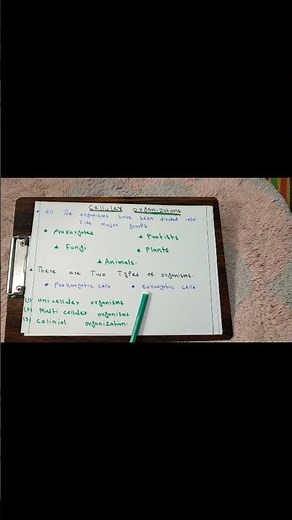 Cellular organizations
* All the organisms have been divided into
five major groups
* Prokaryotes * Protists
* Fungi * Plants
* Animals.
* There are Two Types of organisms.
* Prokaryotic cells * Eukaryotic cells
(1) Unicellular organisms
(2) Multi cellular organisms
(3) Colinial organization.